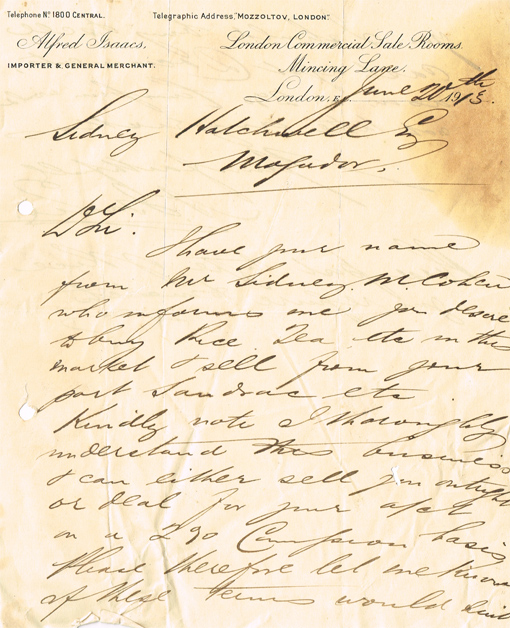 Telephone No. 1800 Central.
Telegraphic Address, "Mozzoltov, London."
Alfred Isaacs,
Importer & General Merchant.
London Commercial Sale Rooms.
Mincing Lane.
London, E.C. June 20th 1913.
Sidney Hatchwell Esq
Mogador.
D/Sir.
I have your name
from Mr Sidney. M. Cohen
who informs me you desire
to buy Rice Tea etc in this
market & sell from your
port Sandrac etc.
Kindly note I thoroughly
understand this business
& can either sell you outright
or deal for your a/c
on a 2% Commission basis
Please therefore let me know
if these terms would suit